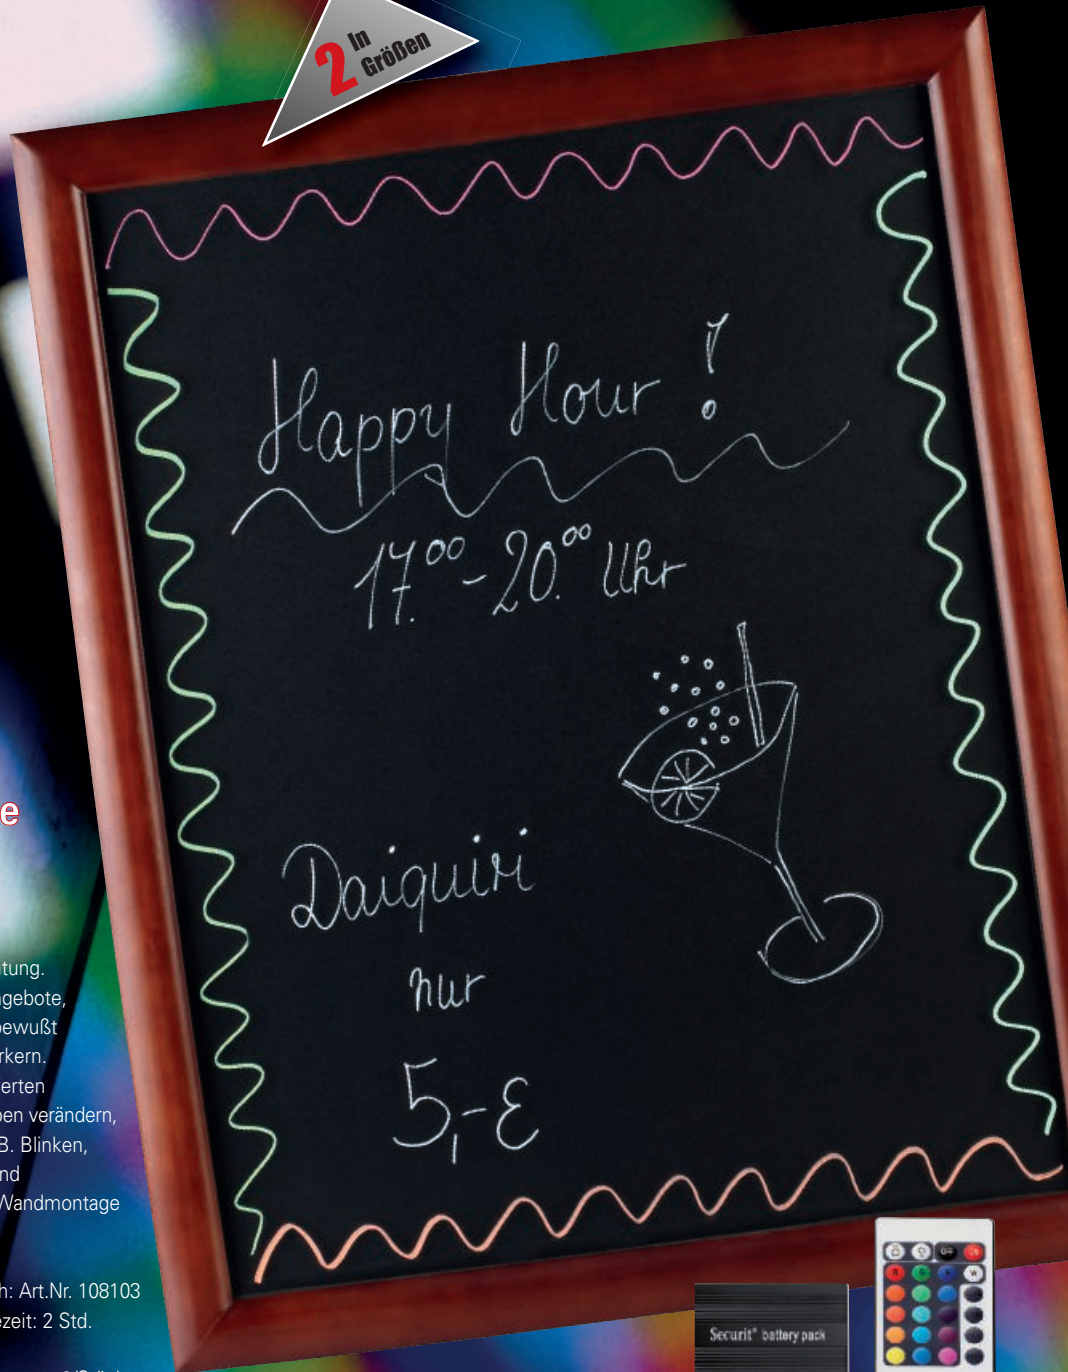 2 In
Größen
Happy Hour!
17.00-20.00 Uhr
Daiquiri
nur
5,-€
e
tung.
gebote,
bewußt
rkern.
erten
ben verändern,
B. Blinken,
nd
Wandmontage
h: Art.Nr. 108103
ezeit: 2 Std.
Securit® battery pack